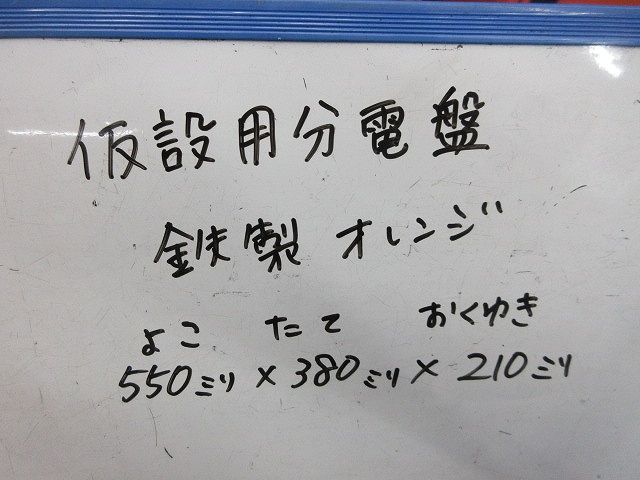 仮設用分電盤
鉄製 オレンジ
よこ たて おくゆき
550ミリ × 380ミリ × 210ミリ